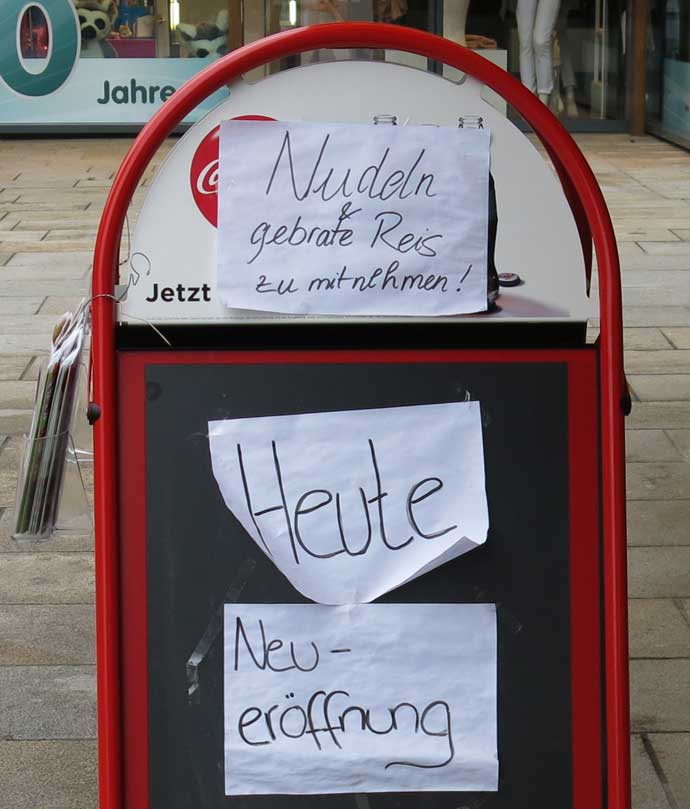 0
Jahre
Nudeln
&
gebrate Reis
zu mitnehmen!
Jetzt
Heute
Neu-
eröffnung